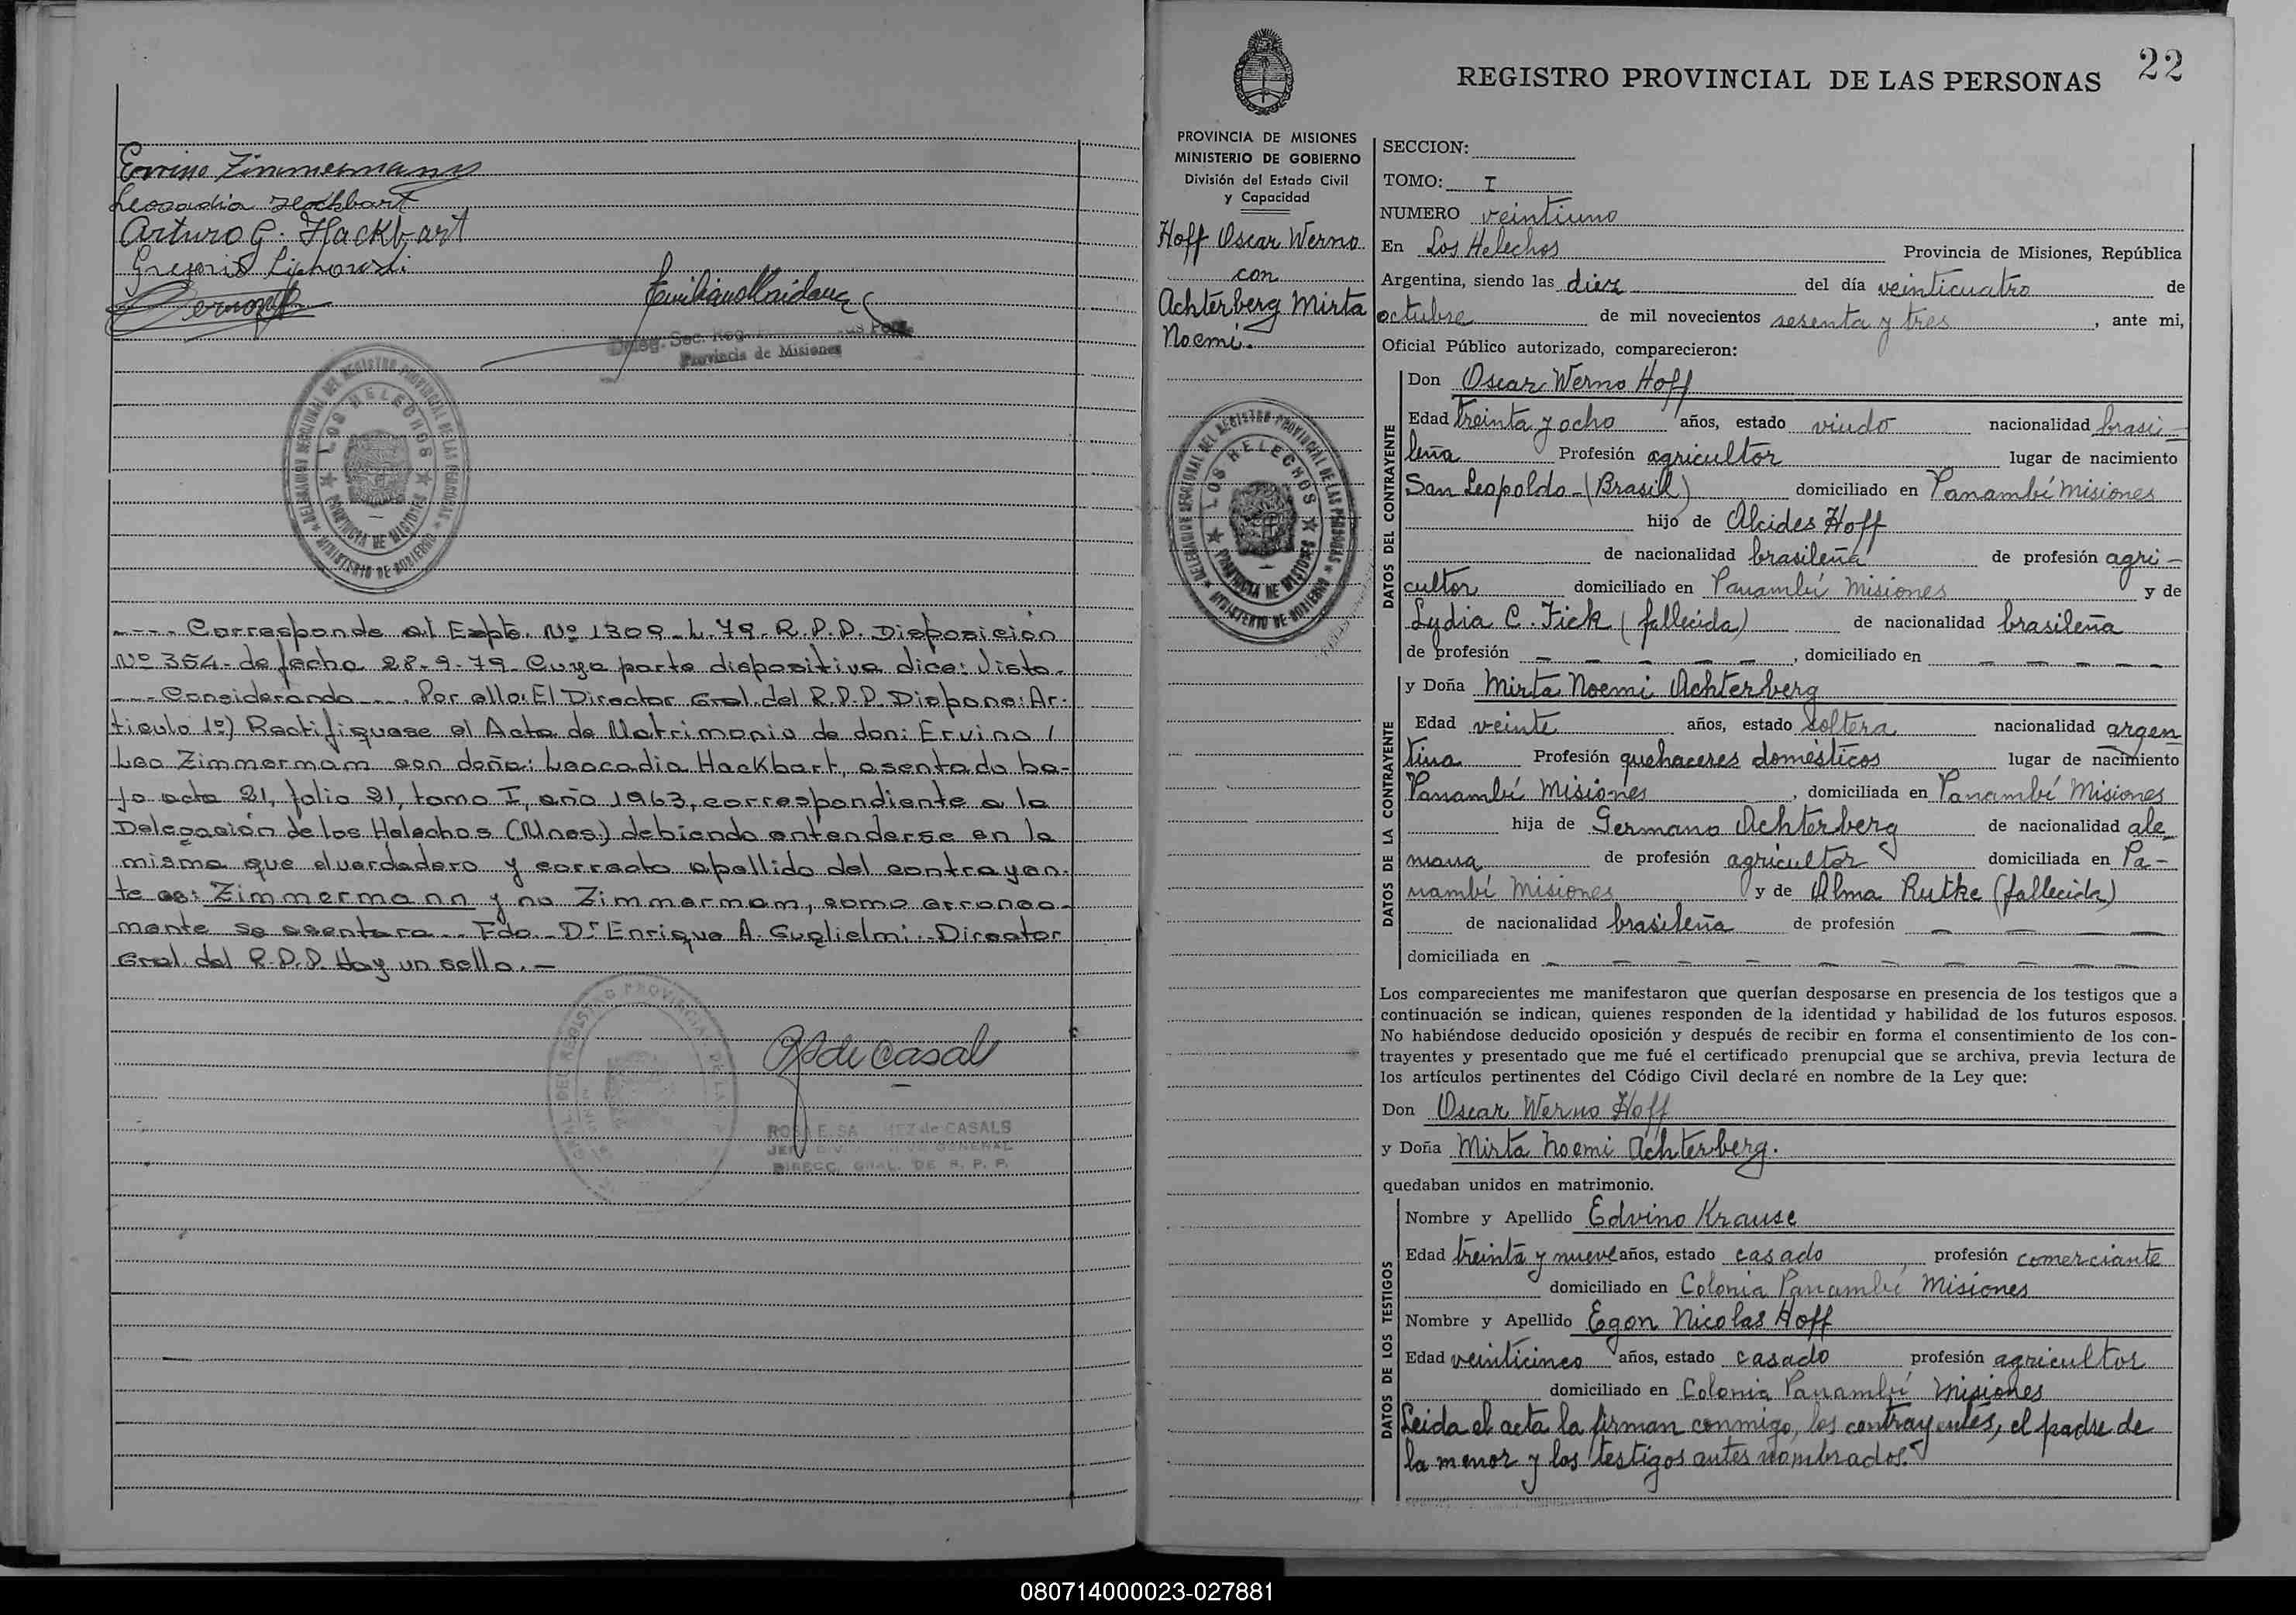 Ervino Zimmermann
Leocadia Hackbart
Arturo G. Hackbart
Gregorio
Deleg. Sec. Reg.
Provincia de Misiones
DELEGACION SECCIONAL DEL REGISTRO PROVINCIAL DE LAS PERSONAS
LOS HELECHOS
PROVINCIA DE MISIONES
MINISTERIO DE GOBIERNO
---- Corresponde al Expte. Nº 1309-L-79-R.P.P. Disposición
Nº 354- de fecha 28-9-79- Cuya parte dispositiva dice: Visto-
---- Considerando---- Por ello: El Director Gral. del R.P.P. Dispone: Ar-
ticulo 1º) Rectifíquese el Acta de Matrimonio de don: Ervino /
Leo Zimmermam con doña: Leocadia Hackbart, asentada ba-
jo acta 21, folio 21, tomo I, año 1963, correspondiente a la
Delegación de los Helechos (Mnes.) debiendo entenderse en la
misma que el verdadero y correcto apellido del contrayen-
te es: Zimmermann y no Zimmermam, como erronea-
mente se asentara.- Fdo- Dr Enrique A. Guglielmi.- Director
Gral. del R.P.P. Hay un sello.-
de Casals
ROSA E. SA HEZ de CASALS
DIRECC. GRAL. DE R. P. P.
22
REGISTRO PROVINCIAL DE LAS PERSONAS
PROVINCIA DE MISIONES
MINISTERIO DE GOBIERNO
División del Estado Civil
y Capacidad
Hoff Oscar Werno
con
Achterberg Mirta
Noemi.
DELEGACION SECCIONAL DEL REGISTRO PROVINCIAL DE LAS PERSONAS
LOS HELECHOS
PROVINCIA DE MISIONES
MINISTERIO DE GOBIERNO
SECCION:
TOMO: I
NUMERO veintiuno
En Los Helechos Provincia de Misiones, República
Argentina, siendo las diez del día veinticuatro de
octubre de mil novecientos sesenta y tres, ante mi,
Oficial Público autorizado, comparecieron:
DATOS DEL CONTRAYENTE
Don Oscar Werno Hoff
Edad treinta y ocho años, estado viudo nacionalidad brasi-
leña Profesión agricultor lugar de nacimiento
San Leopoldo-(Brasil) domiciliado en Panambí Misiones
hijo de Alcides Hoff
de nacionalidad brasileña de profesión agri-
cultor domiciliado en Panambí Misiones y de
Lydia C. Fick (fallecida) de nacionalidad brasileña
de profesión - - - - -, domiciliado en - - - - -
DATOS DE LA CONTRAYENTE
y Doña Mirta Noemi Achterberg
Edad veinte años, estado soltera nacionalidad argen
tina Profesión quehaceres domésticos lugar de nacimiento
Panambí Misiones, domiciliada en Panambí Misiones
hija de Germano Achterberg de nacionalidad ale-
mana de profesión agricultor domiciliada en Pa-
nambí Misiones y de Alma Rutke (fallecida)
de nacionalidad brasileña de profesión - - -
domiciliada en - - - - - - - - - -
Los comparecientes me manifestaron que querían desposarse en presencia de los testigos que a
continuación se indican, quienes responden de la identidad y habilidad de los futuros esposos.
No habiéndose deducido oposición y después de recibir en forma el consentimiento de los con-
trayentes y presentado que me fué el certificado prenupcial que se archiva, previa lectura de
los artículos pertinentes del Código Civil declaré en nombre de la Ley que:
Don Oscar Werno Hoff
y Doña Mirta Noemi Achterberg.
quedaban unidos en matrimonio.
DATOS DE LOS TESTIGOS
Nombre y Apellido Edvino Krause
Edad treinta y nueve años, estado casado, profesión comerciante
domiciliado en Colonia Panambí Misiones
Nombre y Apellido Egon Nicolas Hoff
Edad veinticinco años, estado casado profesión agricultor
domiciliado en Colonia Panambí Misiones
Leida el acta la firman conmigo, los contrayentes, el padre de
la menor y los testigos antes nombrados.
080714000023-027881